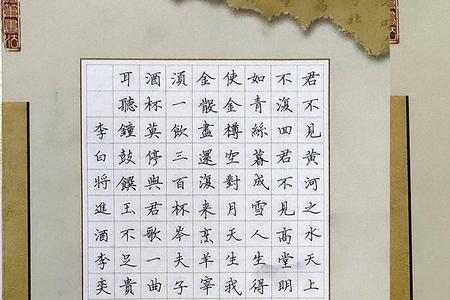 君不見黃河之水天上
不復回君不見高堂明
如青絲暮成雪人生得
使金樽空對月天生我
金散盡還復来烹羊宰
須一飲三百杯岑夫子
酒杯莫停與君歌一曲
耳聽鐘鼓饌玉不足貴
李白將進酒李奕